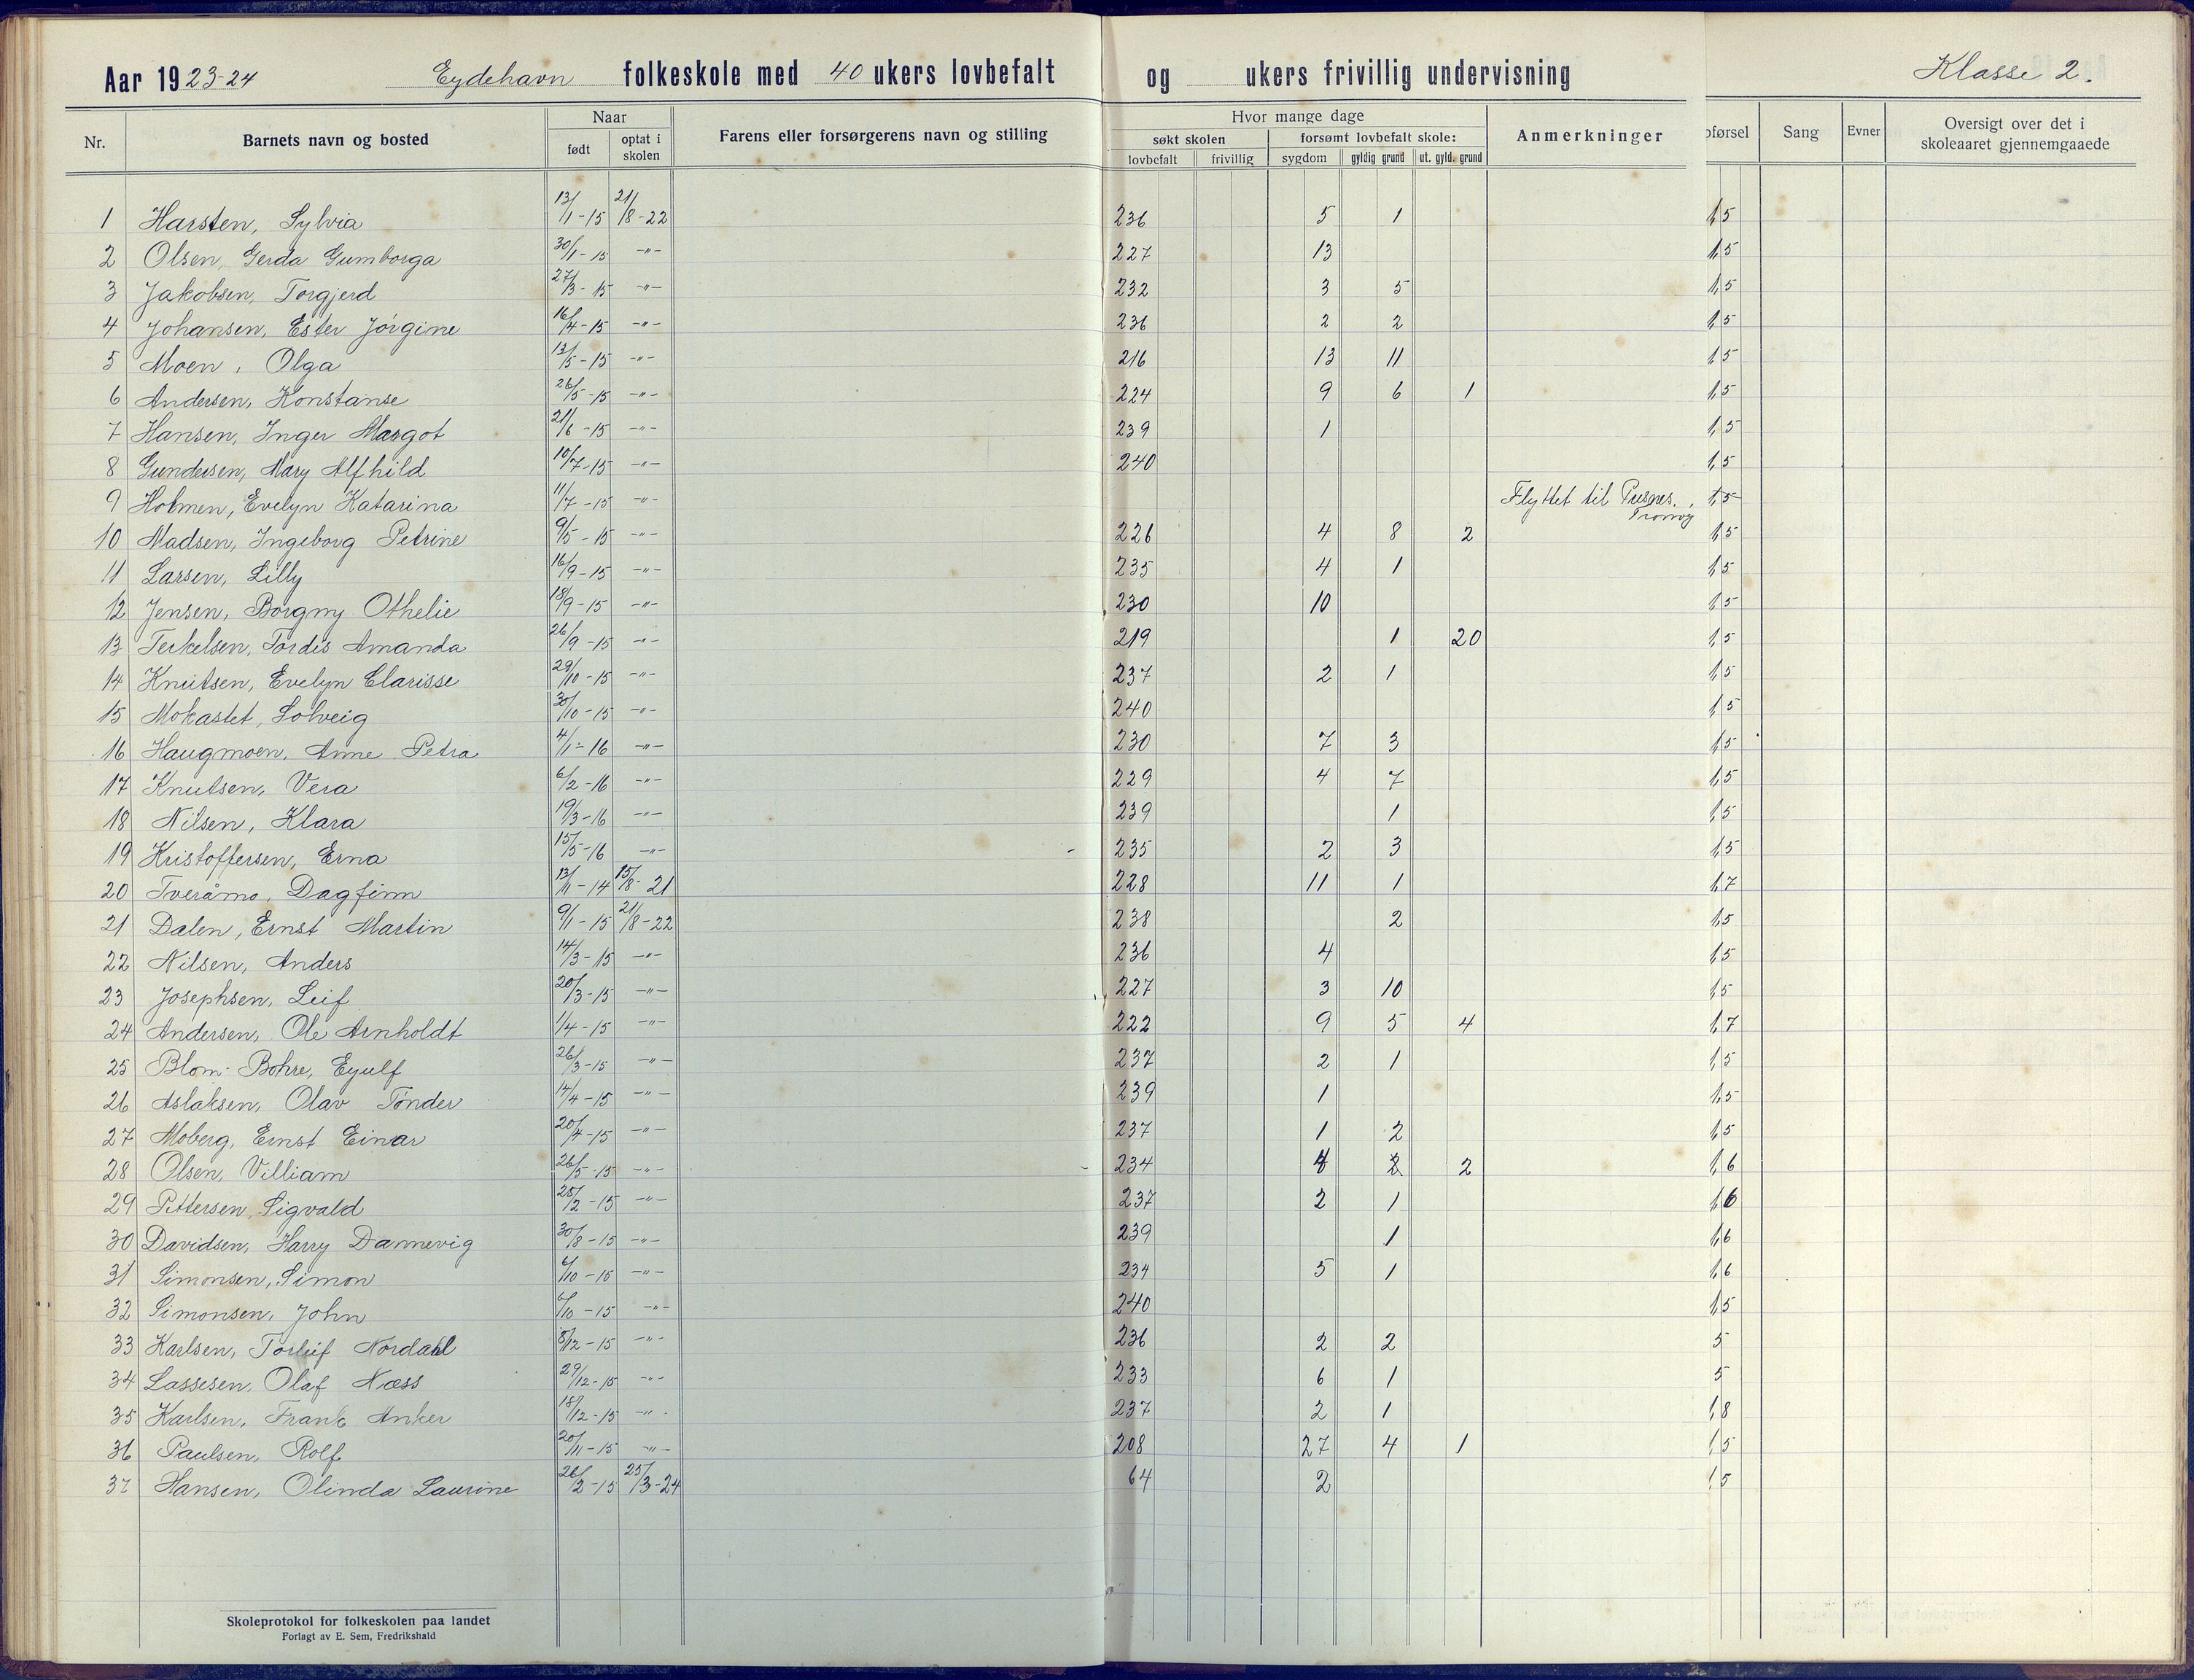 Aar 1923-24 Eydehavn folkeskole med 40 ukers lovbefalt og ukers frivillig undervisning Klasse 2.
Nr. Barnets navn og bosted Naar født optat i skolen Farens eller forsørgerens navn og stilling Hvor mange dage søkt skolen lovbefalt frivillig forsømt lovbefalt skole: sygdom gyldig grund ut. gyld. grund Anmerkninger førsel Sang Evner Oversigt over det i skoleaaret gjennemgaaede
1 Harsten, Sylvia 13/1-15 21/8-22 236 5 1 1,5
2 Olsen, Gerda Gumborga 30/1-15 -"- 227 13 1,5
3 Jakobsen, Torgjerd 27/3-15 -"- 232 3 5 1,5
4 Johansen, Ester Jørgine 16/4-15 -"- 236 2 2 1,5
5 Moen, Olga 13/5-15 -"- 216 13 11 1,5
6 Andersen, Konstanse 26/5-15 -"- 224 9 6 1 1,5
7 Hansen, Inger Margot 21/6-15 -"- 239 1 1,5
8 Gundersen, Mary Alfhild 10/7-15 -"- 240 1,5
9 Holmen, Evelyn Katarina 11/7-15 -"- Flyttet til Pusnes, Tromøy 1,5
10 Madsen, Ingeborg Petrine 9/5-15 -"- 226 4 8 2 1,5
11 Larsen, Lilly 16/9-15 -"- 235 4 1 1,5
12 Jensen, Borgny Othelie 18/9-15 -"- 230 10 1,5
13 Terkelsen, Tordis Amanda 26/9-15 -"- 219 1 20 1,5
14 Knutsen, Evelyn Clarisse 29/10-15 -"- 237 2 1 1,5
15 Mokastet, Solveig 30/10-15 -"- 240 1,5
16 Haugmoen, Anne Petra 4/1-16 -"- 230 7 3 1,5
17 Knutsen, Vera 6/2-16 -"- 229 4 7 1,5
18 Nilsen, Klara 19/3-16 -"- 239 1 1,5
19 Kristoffersen, Erna 15/5-16 -"- 235 2 3 1,5
20 Tveråmo, Dagfinn 13/1-14 15/8-21 228 11 1 1,7
21 Dalen, Ernst Martin 9/1-15 21/8-22 238 2 1,5
22 Nilsen, Anders 14/3-15 -"- 236 4 1,5
23 Josephsen, Leif 20/3-15 -"- 227 3 10 1,5
24 Andersen, Ole Arnholdt 1/4-15 -"- 222 9 5 4 1,7
25 Blom-Bohre, Eyulf 26/3-15 -"- 237 2 1 1,5
26 Aslaksen, Olav Tønder 17/4-15 -"- 239 1 1,5
27 Moberg, Ernst Einar 20/4-15 -"- 237 1 2 1,5
28 Olsen, Villiam 26/5-15 -"- 234 4 2 2 1,6
29 Pettersen, Sigvald 25/2-15 -"- 237 2 1 1,6
30 Davidsen, Harry Dannevig 30/8-15 -"- 239 1 1,6
31 Simonsen, Simon 6/10-15 -"- 234 5 1 1,6
32 Simonsen, John 6/10-15 -"- 240 1,5
33 Karlsen, Torleif Nordahl 8/12-15 -"- 236 2 2 5
34 Lassesen, Olaf Næss 29/12-15 -"- 233 6 1 5
35 Karlsen, Frank Anker 18/12-15 -"- 237 2 1 1,8
36 Paulsen, Rolf 20/11-15 -"- 208 27 4 1 1,5
37 Hansen, Olinda Laurine 26/2-15 25/3-24 64 2 1,5
Skoleprotokol for folkeskolen paa landet
Forlagt av E. Sem, Fredrikshald